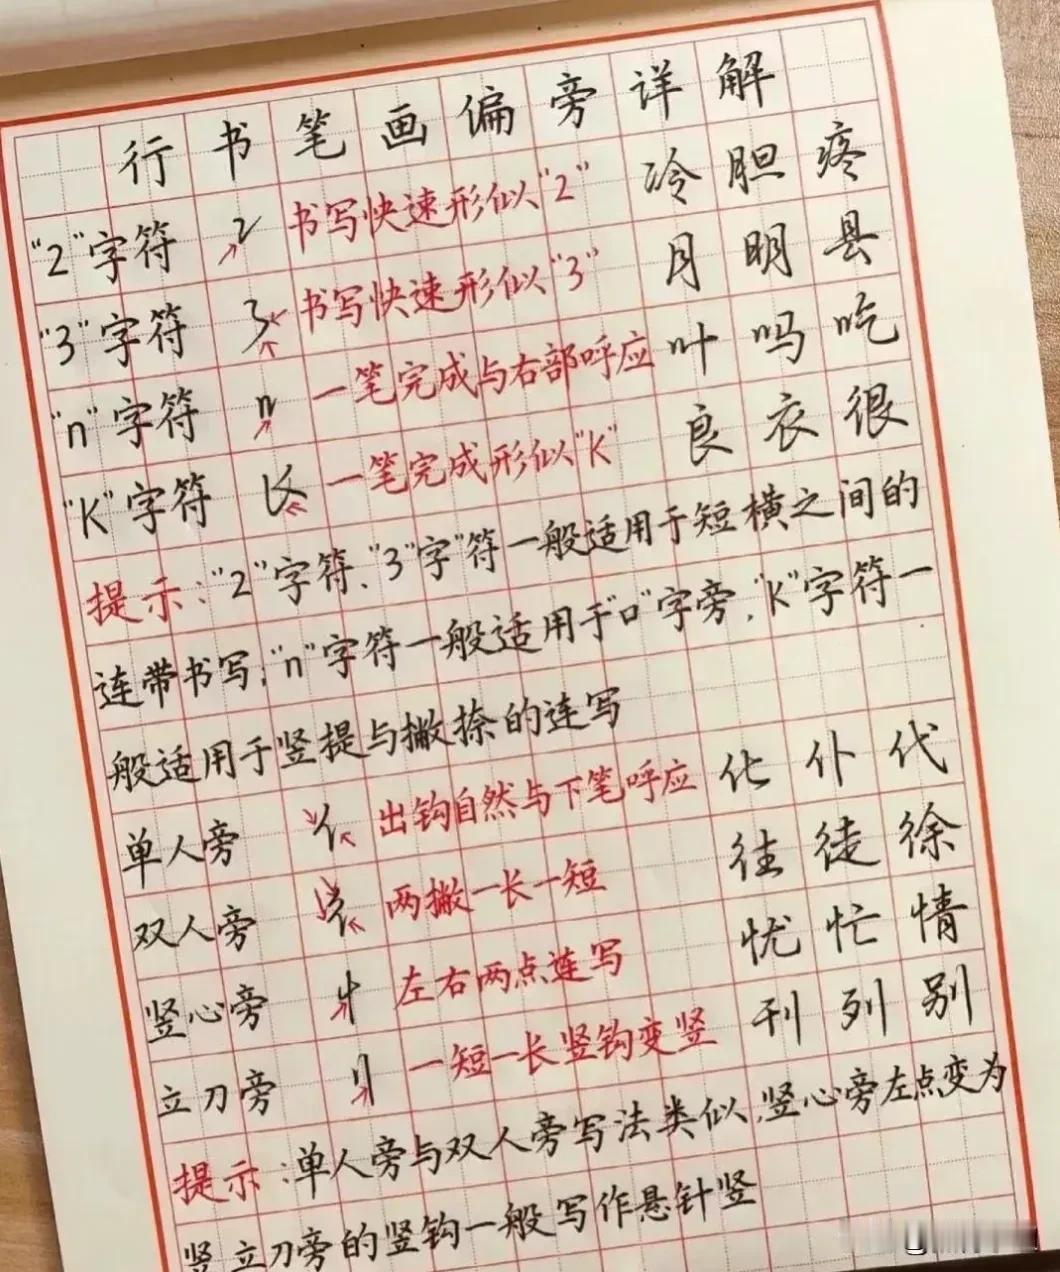 行书笔画偏旁详解
"2"字符 书写快速形似"2" 冷胆疼
"3"字符 书写快速形似"3" 月明县
"n"字符 一笔完成与右部呼应 叶吗吃
"K"字符 一笔完成形似"K" 良衣很
提示:"2"字符、"3"字"符一般适用于短横之间的
连带书写;"n"字符一般适用于"口"字旁,"K"字符一
般适用于竖提与撇捺的连写
单人旁 亻 出钩自然与下笔呼应 化仆代
双人旁 彳 两撇一长一短 往徒徐
竖心旁 忄 左右两点连写 忧忙情
立刀旁 刂 一短一长竖钩变竖 刊列别
提示:单人旁与双人旁写法类似,竖心旁左点变为
竖立刀旁的竖钩一般写作悬针竖